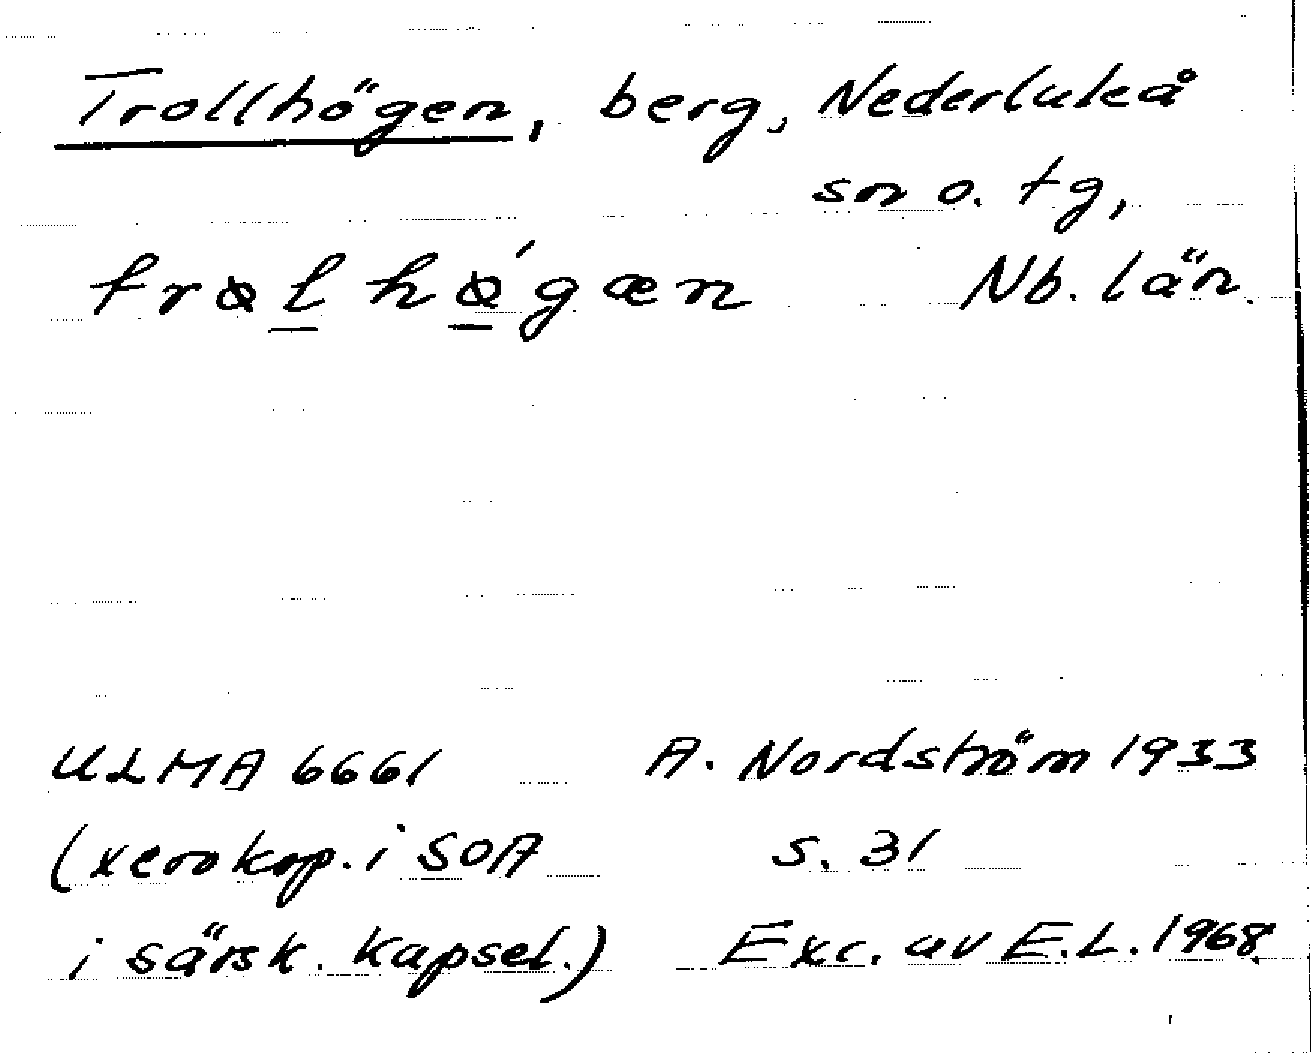 Trollhögen, berg, Nederluleå
sn o. tg,
Nb. län.
ULMA 6661 A. Nordström 1933
(xerokop. i SOA s. 31
i särsk. kapsel.) Exc. av E.L. 1968